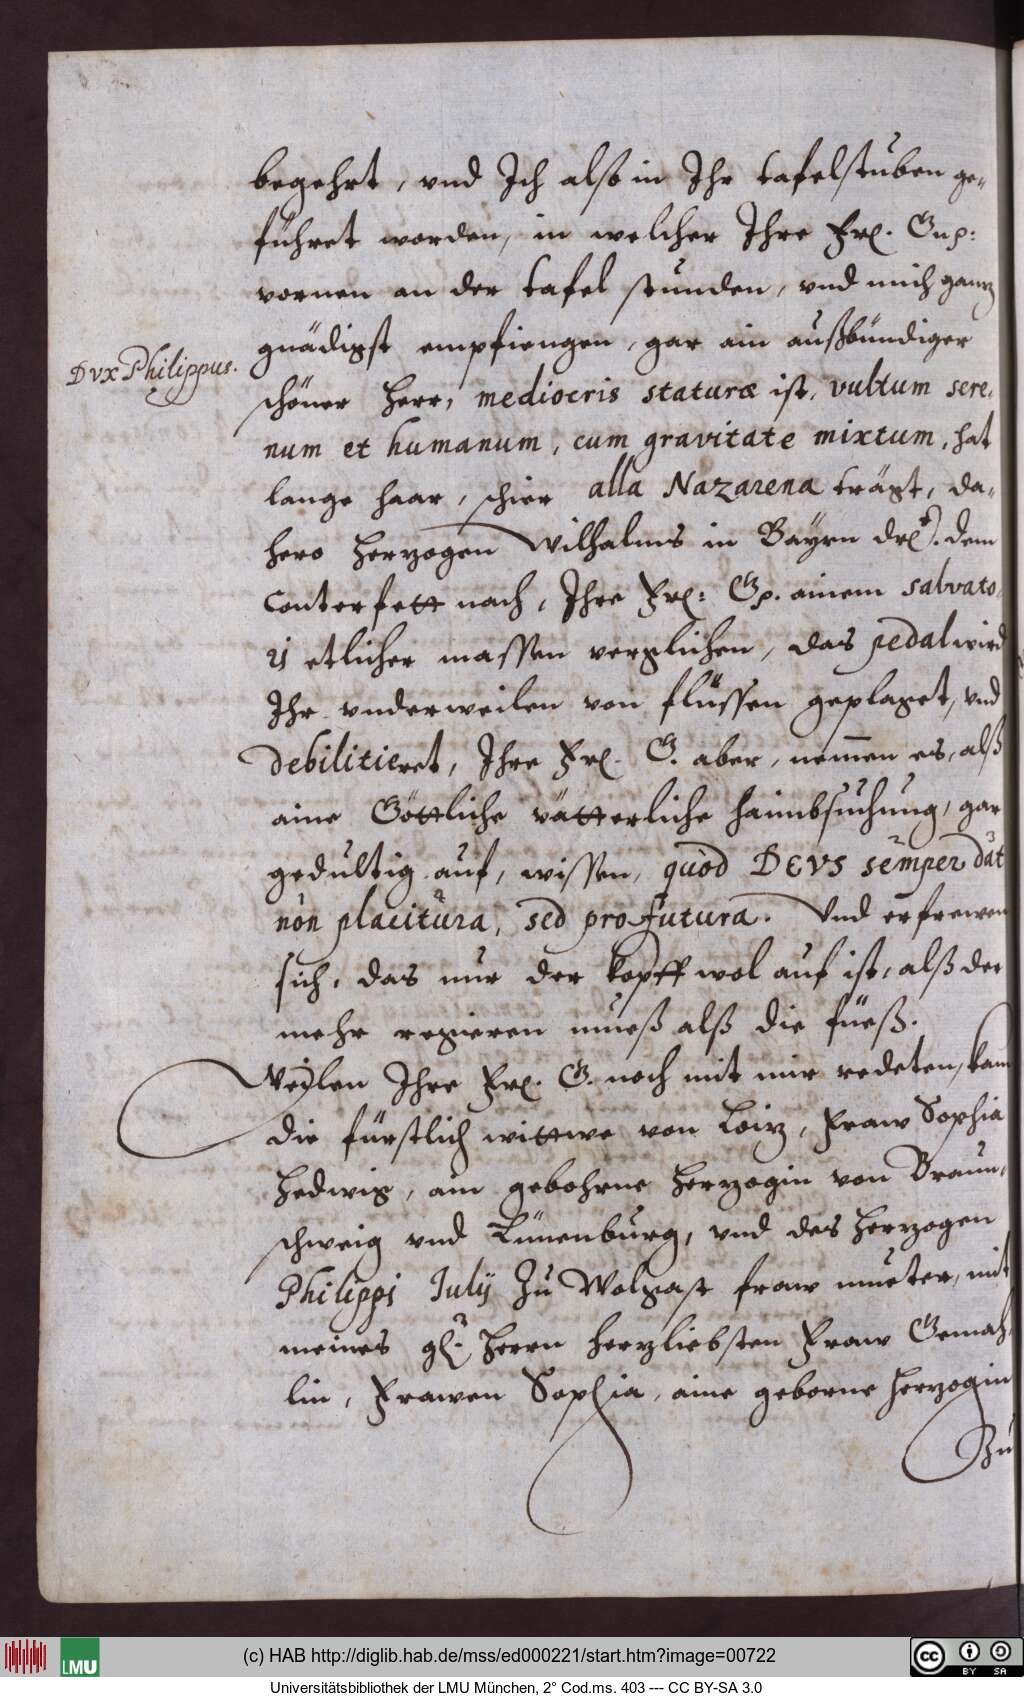 begehrt, vnd Ich also in Ihr tafelstuben ge-
führet worden, in welcher Ihre Frl. Gnp:
vornen an der tafel stunden, vnd mich ganz
gnädigst empfiengen, gar ain außbündiger
DVX Philippus.
schöner Herr, mediocris staturæ ist, vultum sere-
num et humanum, cum gravitate mixtum, hat
lange haar, schier alla Nazarena trägt, da-
hero Herzogen Wilhalms in Bayrn drl. dem
Conterfett nach, Ihre Frl: Gp. ainem salvato-
ri etlicher massen verglichen, das pedal wird
Ihr vnderweilen von flüssen geplaget, vnd
debilitieret, Ihre Frl. G. aber, nemmen es, alß
aine Göttliche vätterliche haimbsuchung, gar
gedultig auf, wissen, quòd DEVS semper dat
non placitura, sed profutura. Vnd erfrewen
sich, das nur der kopff wol auf ist, alß der
mehr regieren mueß alß die füeß.
Weylen Ihre Frl. G. noch mit mir redeten, kam
die fürstlich wittwe von Loiz, Fraw Sophia
Hedwig, ain gebohrne Herzogin von Braun-
schweig vnd Lünenburg, vnd des Herzogen
Philippi Julij Zu Wolgast fraw mueter, mit
meines gl. Herrn herzliebsten Fraw Gemah-
lin, Frawen Sophia, aine geborne Herzogin
Zu
(c) HAB http://diglib.hab.de/mss/ed000221/start.htm?image=00722
LMU
CC BY SA
Universitätsbibliothek der LMU München, 2° Cod.ms. 403 --- CC BY-SA 3.0